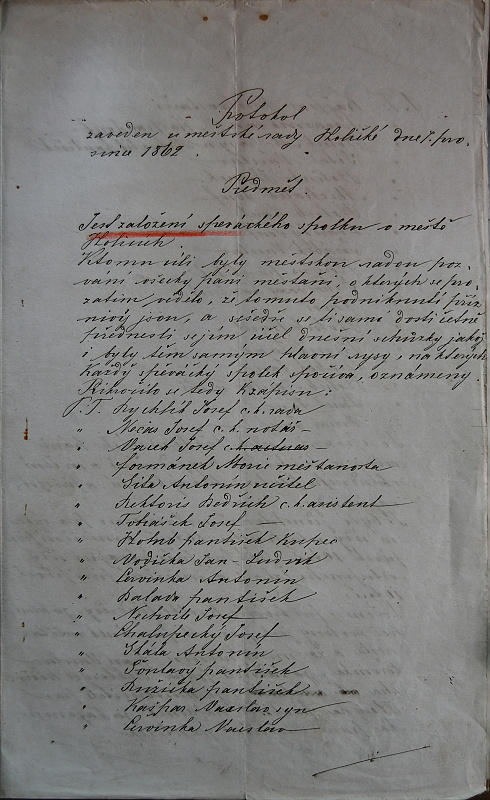 Protokol
zaveden u městské rady Holické dne 1. pro-
since 1862.
Předmět.
Jest založení spěváckého spolku v městě
Holicích.
K tomu cíli byly městskou radou poz-
váni všecky páni měšťani, o kterých se pro-
zatím vědělo, že tomuto podniknutí příz-
nivý jsou, a sešedše se ti samí dosti četně
přednesli se jim účel dnešní schůzky jakož
i byly těm samým hlavní rysy, na kterých
každý spěvácký spolek spočívá, oznámeny.
Přikročilo se tedy k zápisu:
P. T. Rychlík Josef c. k. rada
" Nečas Josef c. k. notář -
" Vacek Josef c. k. actuar -
" Formánek Moric měšťanosta
" Sita Antonín učitel
" Rektoris Bedřich c. k. asistent
" Tobiášek Josef -
" Holub František kupec
" Vodička Jan - Ludvík
" Červinka Antonín
" Balada František
" Nechvíle Josef
" Chalupecký Josef
" Skála Antonín
" František
" Růžička František
" Kašpar Václav syn
" Červinka Václav